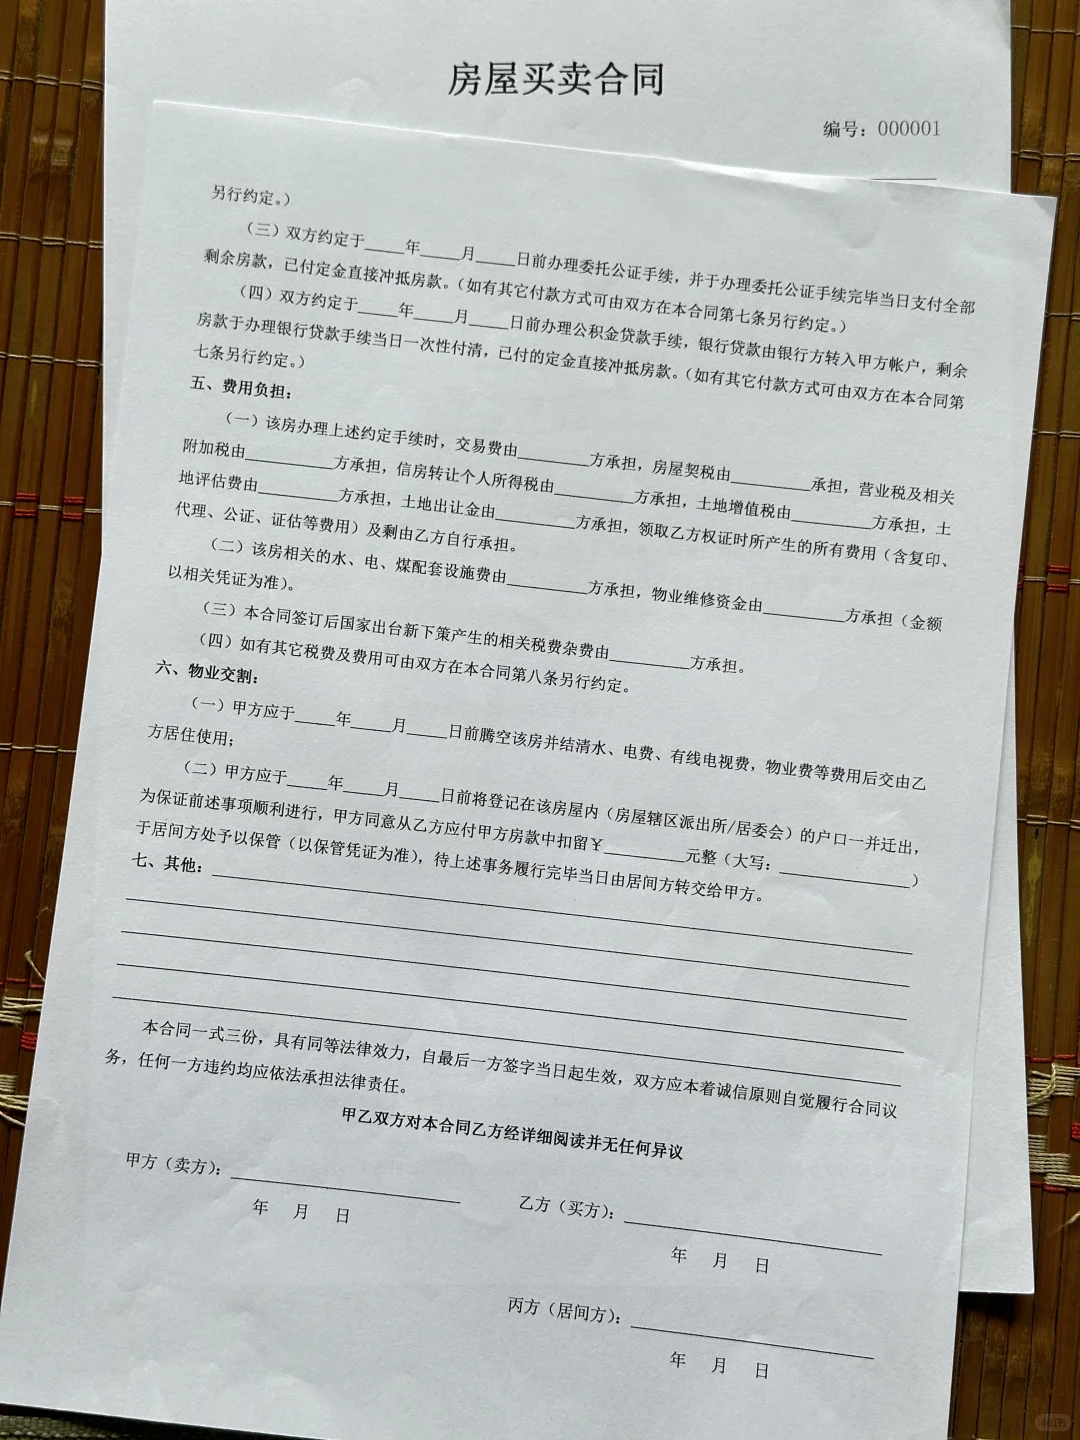 房屋买卖合同
编号：000001
另行约定。）
（三）双方约定于_____年_____月_____日前办理委托公证手续，并于办理委托公证手续完毕当日支付全部
剩余房款，已付定金直接冲抵房款。（如有其它付款方式可由双方在本合同第七条另行约定。）
（四）双方约定于_____年_____月_____日前办理公积金贷款手续，银行贷款由银行方转入甲方帐户，剩余
房款于办理银行贷款手续当日一次性付清，已付的定金直接冲抵房款。（如有其它付款方式可由双方在本合同第
七条另行约定。）
五、费用负担：
（一）该房办理上述约定手续时，交易费由_________方承担，房屋契税由__________承担，营业税及相关
附加税由___________方承担，信房转让个人所得税由__________方承担，土地增值税由__________方承担，土
地评估费由__________方承担，土地出让金由__________方承担，领取乙方权证时所产生的所有费用（含复印、
代理、公证、证估等费用）及剩由乙方自行承担。
（二）该房相关的水、电、煤配套设施费由__________方承担，物业维修资金由__________方承担（金额
以相关凭证为准）。
（三）本合同签订后国家出台新下策产生的相关税费杂费由__________方承担。
（四）如有其它税费及费用可由双方在本合同第八条另行约定。
六、物业交割：
（一）甲方应于_____年_____月_____日前腾空该房并结清水、电费、有线电视费，物业费等费用后交由乙
方居住使用；
（二）甲方应于_____年_____月_____日前将登记在该房屋内（房屋辖区派出所/居委会）的户口一并迁出，
为保证前述事项顺利进行，甲方同意从乙方应付甲方房款中扣留￥__________元整（大写：________________）
于居间方处予以保管（以保管凭证为准），待上述事务履行完毕当日由居间方转交给甲方。
七、其他：
本合同一式三份，具有同等法律效力，自最后一方签字当日起生效，双方应本着诚信原则自觉履行合同议
务，任何一方违约均应依法承担法律责任。
甲乙双方对本合同乙方经详细阅读并无任何异议
甲方（卖方）：
乙方（买方）：
年 月 日
年 月 日
丙方（居间方）：
年 月 日